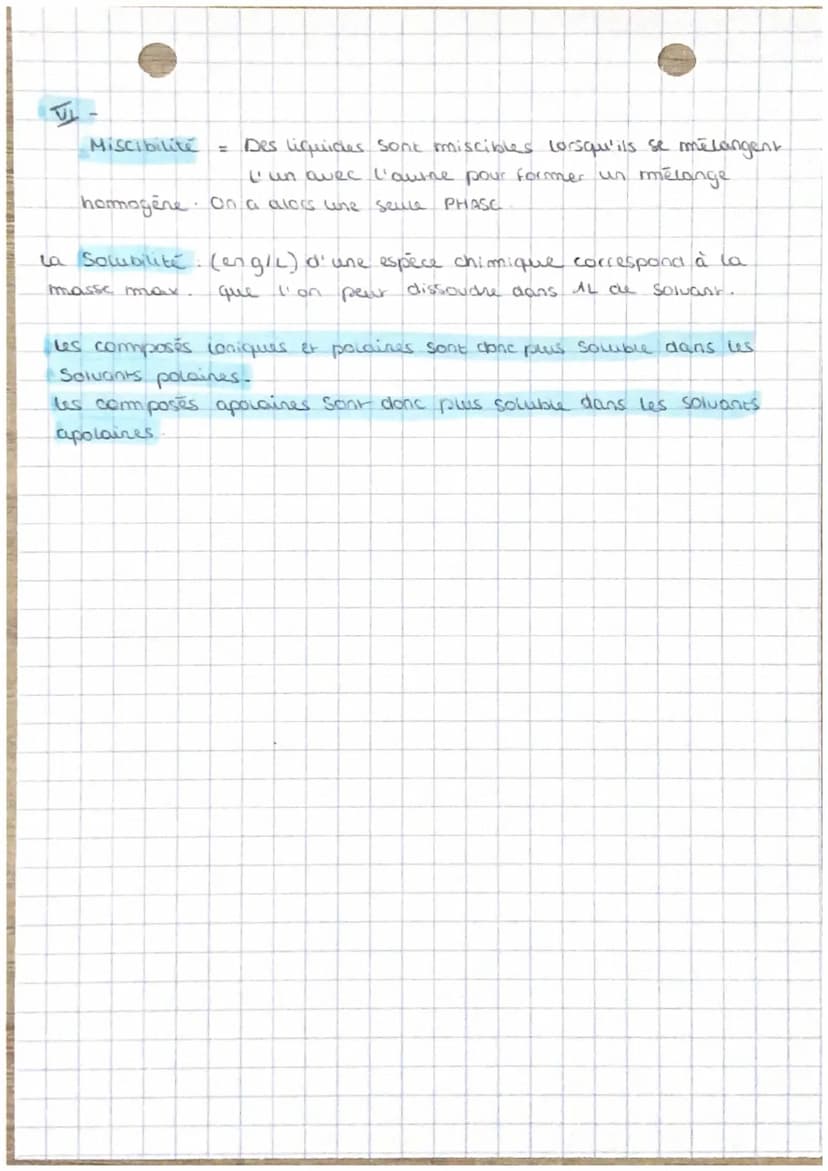 VI -
Miscibilité = Des liquides sont miscibles lorsqu'ils se mélangent
l'un avec l'autre pour former un mélange
homogène. On a alors une seule PHASE
La Solubilité. (en g/L) d'une espèce chimique correspond à la
masse max. que l'on peut dissoudre dans 1L de solvant.
Les composés ioniques et polaires sont donc plus soluble dans les
Solvants polaires.
Les composés apolaires sont donc plus soluble dans les solvants
apolaires.